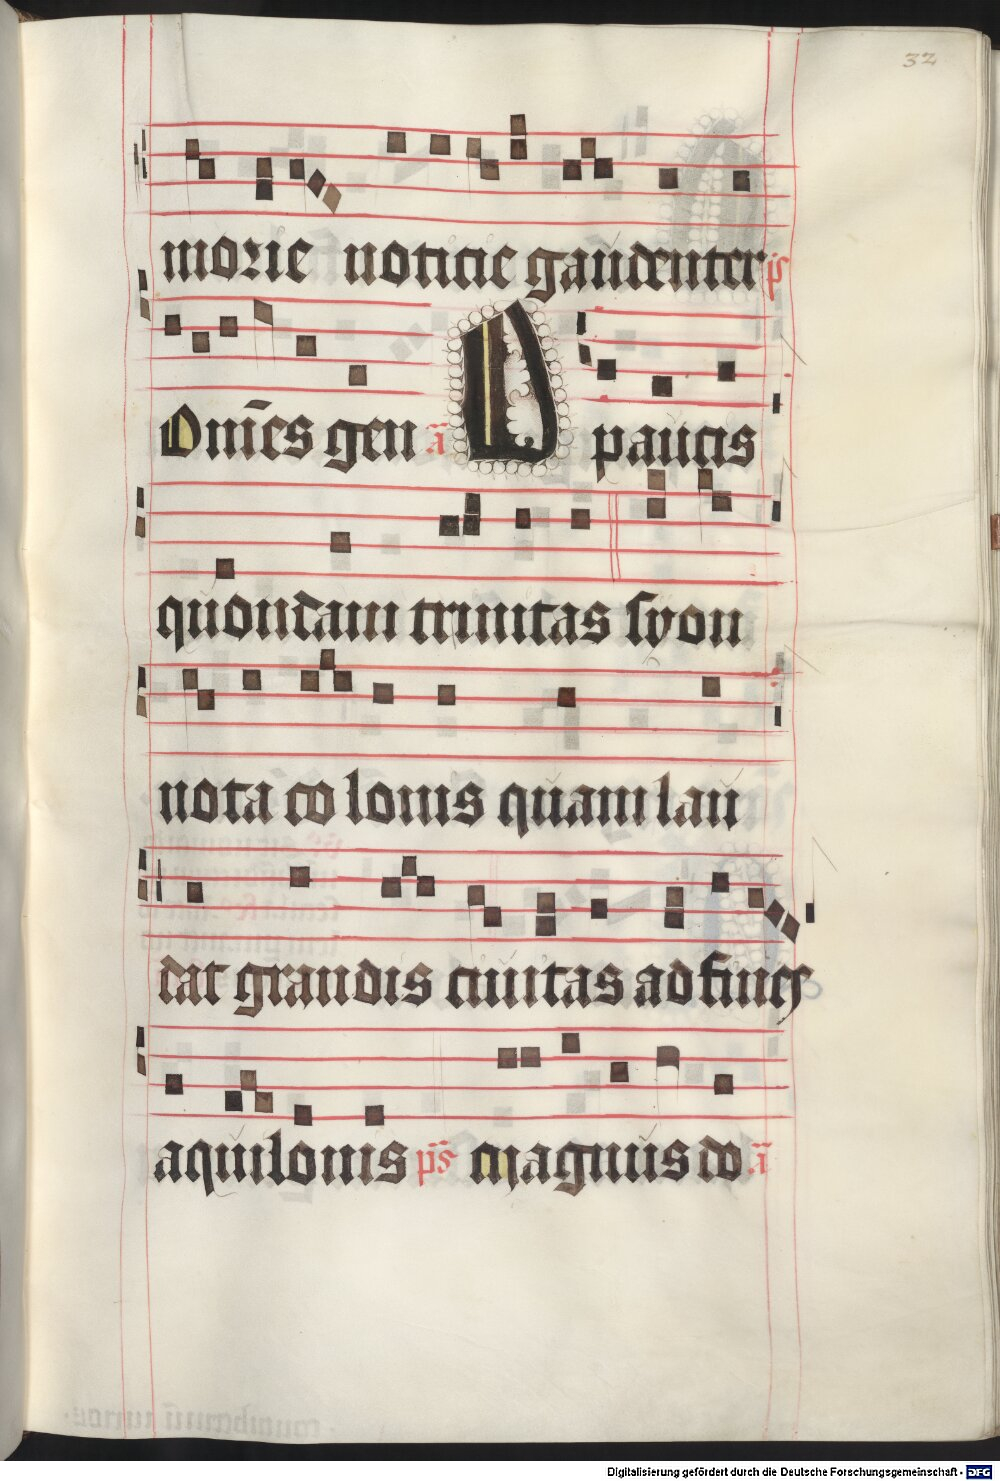 32
morie noticie gaudenter ps
Om̄es gen a͞ A paucis
quondam trinitas syon
nota colonis quam lau
dat grandis ciuitas ad fines
aquilonis p̄s magnus do a͞
Digitalisierung gefördert durch die Deutsche Forschungsgemeinschaft - DFG